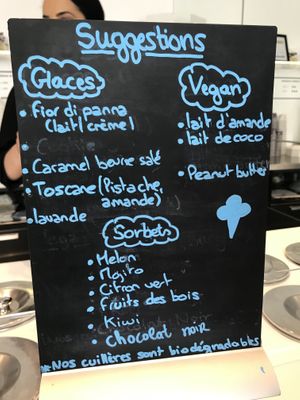 Suggestions
Glaces
• fior di panna
(lait/crème)
• Caramel beurre salé
• Toscane (Pistache,
amande)
• lavande
Vegan
• lait d'amande
• lait de coco
• Peanut butter
Sorbets
• Melon
• Mojito
• Citron vert
• fruits des bois
• Kiwi
• chocolat noir
*Nos cuillères sont biodégradables